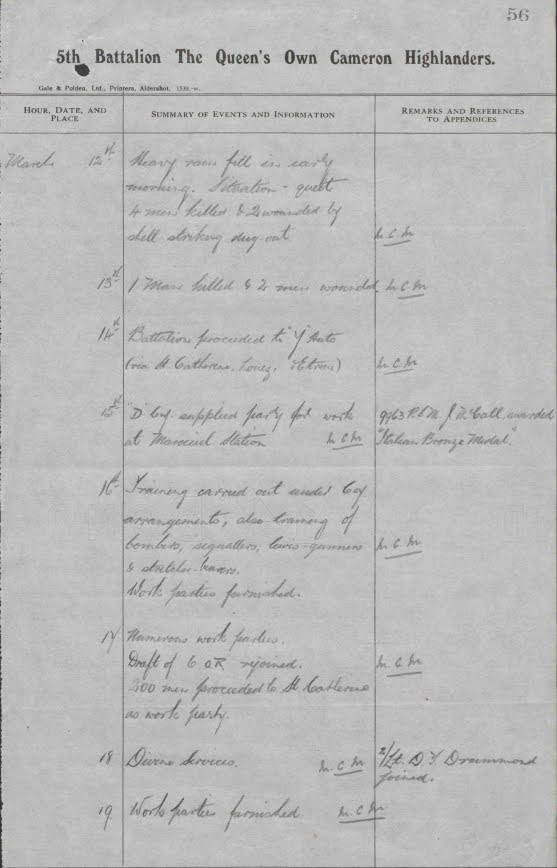 56
5th Battalion The Queen's Own Cameron Highlanders.
Gale & Polden, Ltd., Printers, Aldershot. 1539.-w.
HOUR, DATE, AND PLACE
SUMMARY OF EVENTS AND INFORMATION
REMARKS AND REFERENCES TO APPENDICES
March 12th Heavy rain fell in early
morning. Situation - quiet
4 men killed & 2 wounded by
shell striking dug-out M.C.M
13th 1 Man killed & 2 men wounded M.C.M
14th Battalion proceeded to "Y" Huts
(via St. Catherine, Etrun) M.C.M
15th "D" Coy supplied party for work
at Station M.C.M
9963 J. McCall, awarded
"Italian Bronze Medal."
16th Training carried out under Coy
arrangements, also training of
bombers, signallers, lewis-gunners M.C.M
& stretcher-bearers.
Work parties furnished.
17 Numerous work parties.
Draft of 6 OR rejoined. M.C.M
200 men proceeded to St Catherine
as work party.
18 Divine Services. M.C.M 2/Lt. Drummond
joined.
19 Work parties furnished M.C.M